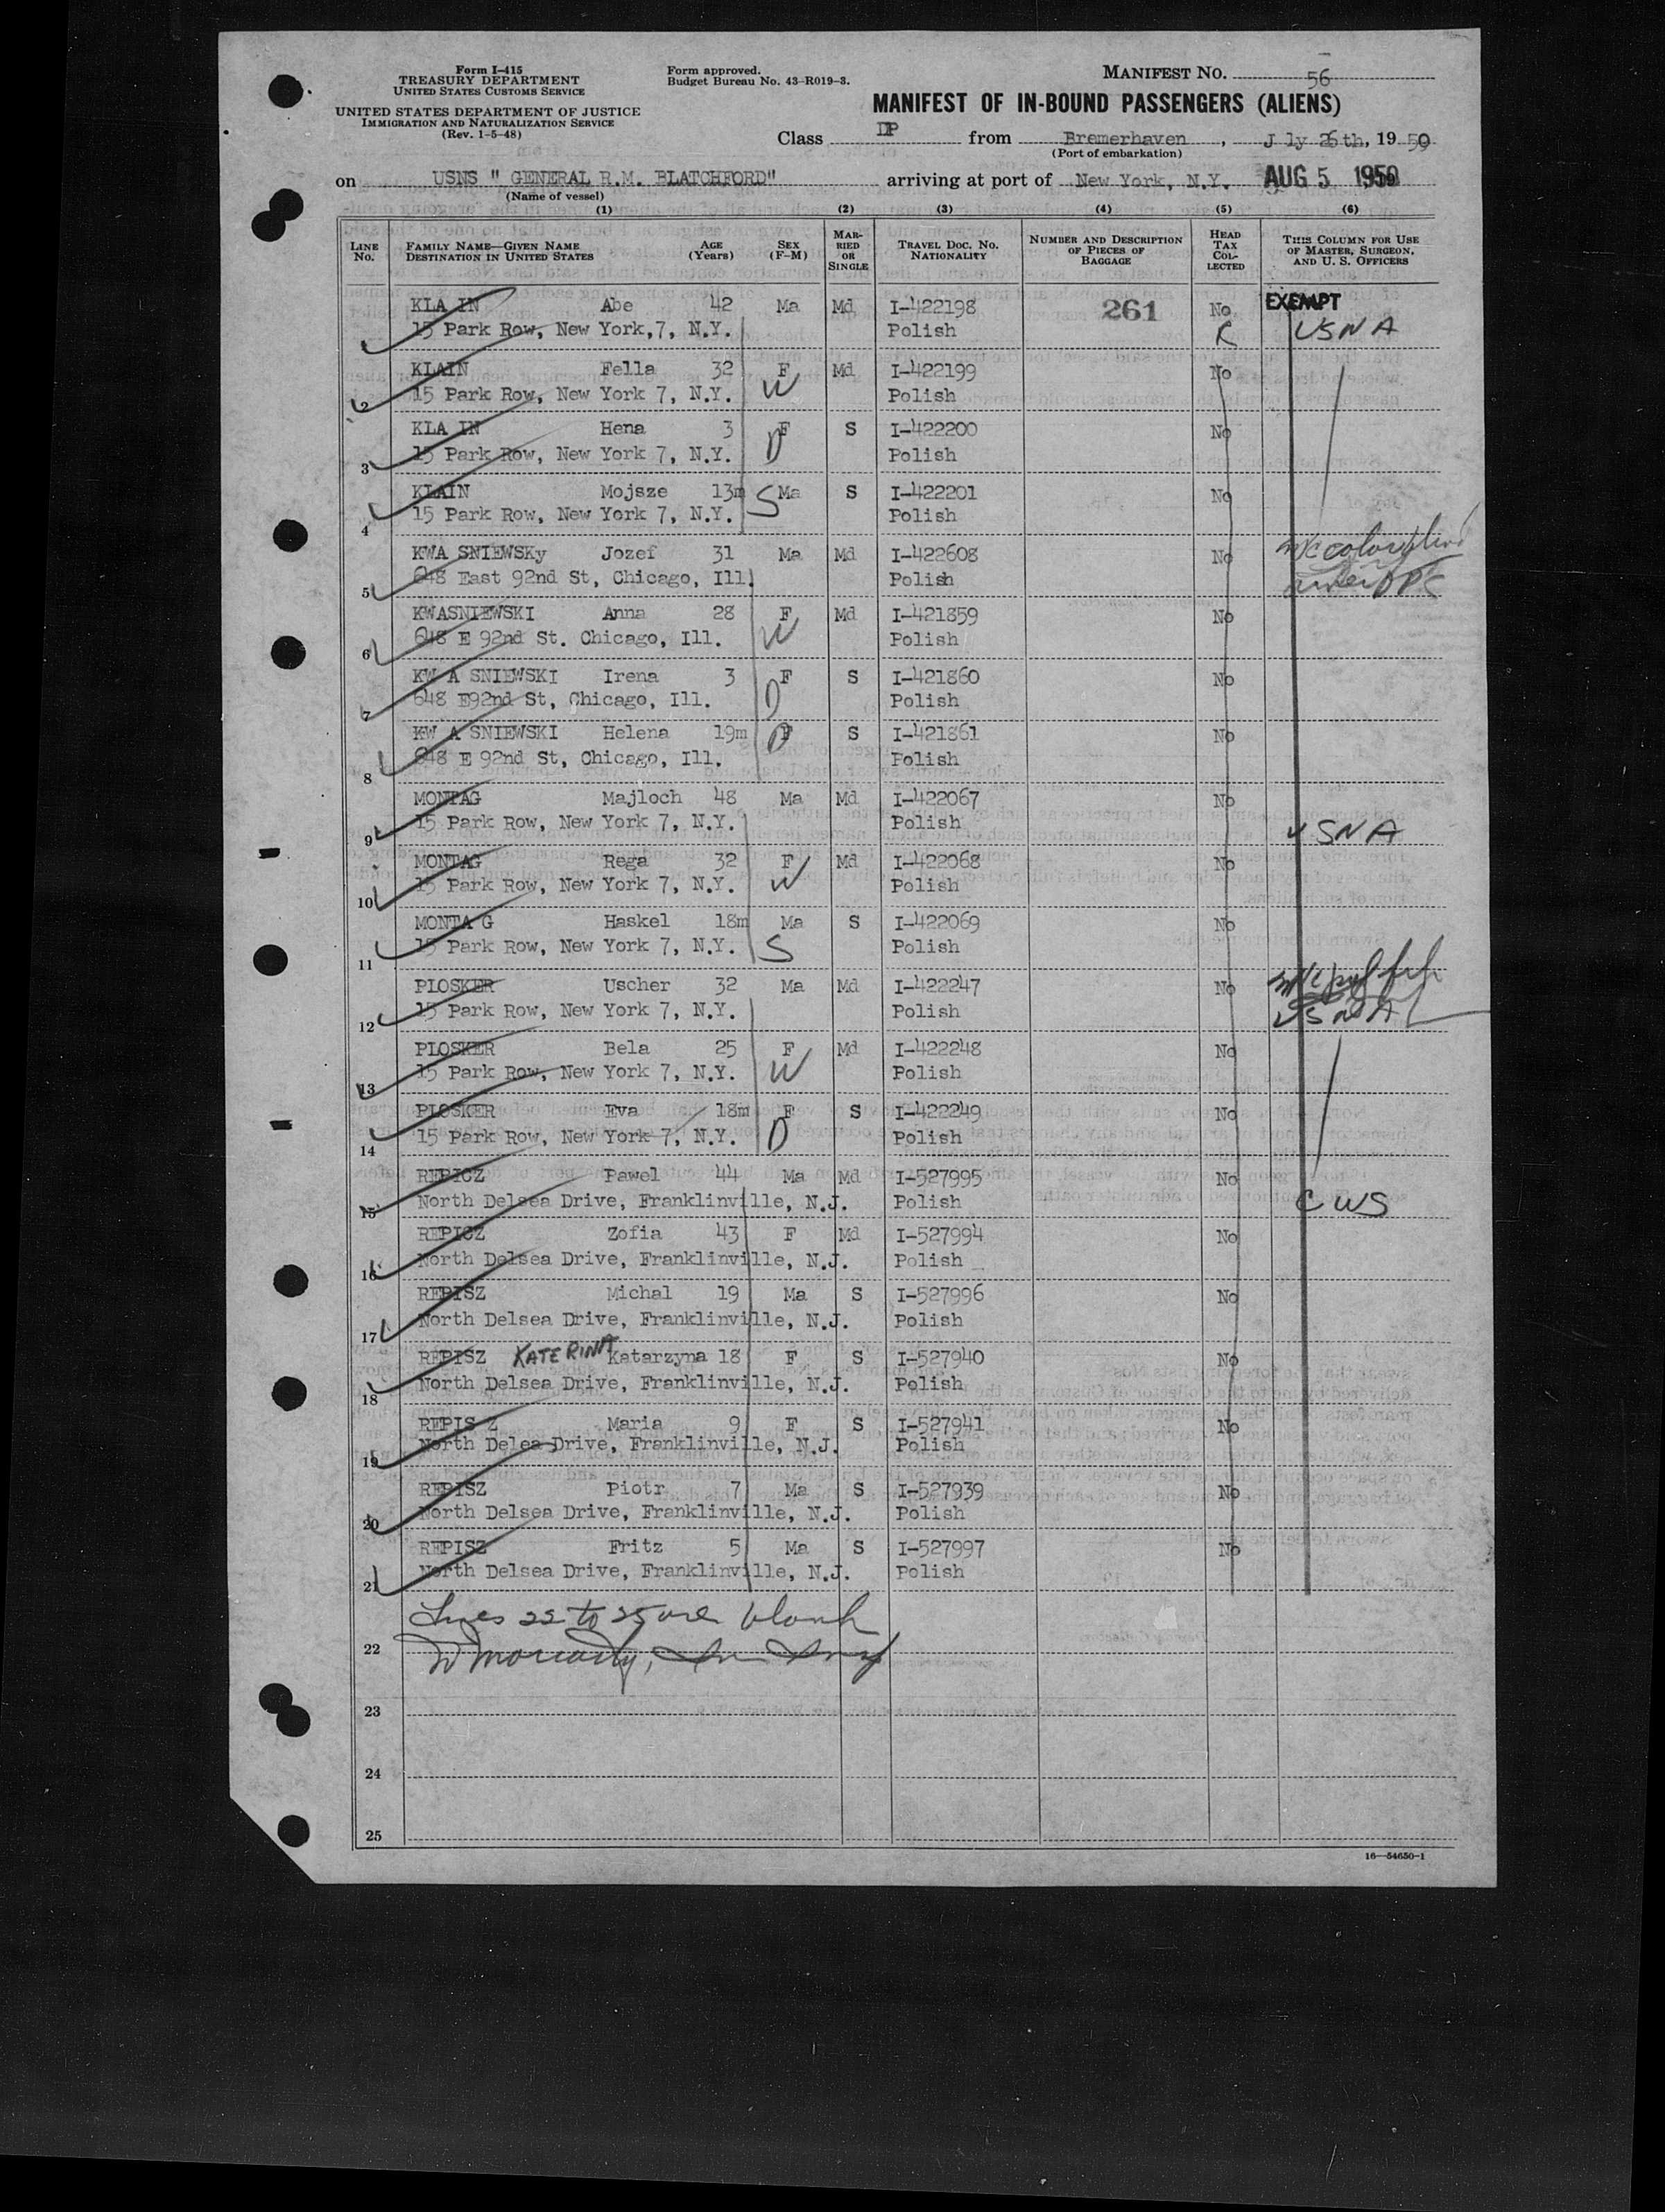 Form I-415
TREASURY DEPARTMENT
UNITED STATES CUSTOMS SERVICE
UNITED STATES DEPARTMENT OF JUSTICE
IMMIGRATION AND NATURALIZATION SERVICE
(Rev. 1-5-48)
Form approved.
Budget Bureau No. 43-R019-3.
MANIFEST NO. 56
MANIFEST OF IN-BOUND PASSENGERS (ALIENS)
Class DP from Bremerhaven, J ly 26th, 1950
(Port of embarkation)
on USNS " GENERAL R.M. BLATCHFORD" arriving at port of New York, N.Y. AUG 5 1950
(Name of vessel)
(1) (2) (3) (4) (5) (6)
LINE No. FAMILY NAME—GIVEN NAME DESTINATION IN UNITED STATES AGE (Years) SEX (F-M) MARRIED OR SINGLE TRAVEL DOC. NO. NATIONALITY NUMBER AND DESCRIPTION OF PIECES OF BAGGAGE HEAD TAX COLLECTED THIS COLUMN FOR USE OF MASTER, SURGEON, AND U. S. OFFICERS
KLA IN Abe 42 Ma Md I-422198 261 No EXEMPT
15 Park Row, New York,7, N.Y. Polish USNA
KLAIN Fella 32 F Md I-422199 No
2 15 Park Row, New York 7, N.Y. W Polish
KLA IN Hena 3 F S I-422200 No
3 15 Park Row, New York 7, N.Y. D Polish
KLAIN Mojsze 13m Ma S I-422201 No
4 15 Park Row, New York 7, N.Y. S Polish
KWA SNIEWSKy Jozef 31 Ma Md I-422608 No
5 648 East 92nd St, Chicago, Ill. Polish
KWASNIEWSKI Anna 28 F Md I-421859 No
6 648 E 92nd St. Chicago, Ill. W Polish
KW A SNIEWSKI Irena 3 F S I-421860 No
7 648 E92nd St, Chicago, Ill. D Polish
KW A SNIEWSKI Helena 19m F S I-421861 No
8 648 E 92nd St, Chicago, Ill. D Polish
MONTAG Majloch 48 Ma Md I-422067 No
9 15 Park Row, New York 7, N.Y. Polish USNA
MONTAG Rega 32 F Md I-422068 No
10 15 Park Row, New York 7, N.Y. W Polish
MONTA G Haskel 18m Ma S I-422069 No
11 15 Park Row, New York 7, N.Y. S Polish
PLOSKER Uscher 32 Ma Md I-422247 No
12 15 Park Row, New York 7, N.Y. Polish USNA
PLOSKER Bela 25 F Md I-422248 No
13 15 Park Row, New York 7, N.Y. W Polish
PLOSKER Eva 18m F S I-422249 No
14 15 Park Row, New York 7, N.Y. D Polish
REPICZ Pawel 44 Ma Md I-527995 No
15 North Delsea Drive, Franklinville, N.J. Polish CWS
REPICZ Zofia 43 F Md I-527994 No
16 North Delsea Drive, Franklinville, N.J. Polish
REPISZ Michal 19 Ma S I-527996 No
17 North Delsea Drive, Franklinville, N.J. Polish
REPISZ KATERINA Katarzyna 18 F S I-527940 No
18 North Delsea Drive, Franklinville, N.J. Polish
REPIS Z Maria 9 F S I-527941 No
19 North Delea Drive, Franklinville, N.J. Polish
REPISZ Piotr 7 Ma S I-527939 No
20 North Delsea Drive, Franklinville, N.J. Polish
REPISZ Fritz 5 Ma S I-527997 No
21 North Delsea Drive, Franklinville, N.J. Polish
Lines 22 to 25 are blank
22
23
24
25
16—54650-1